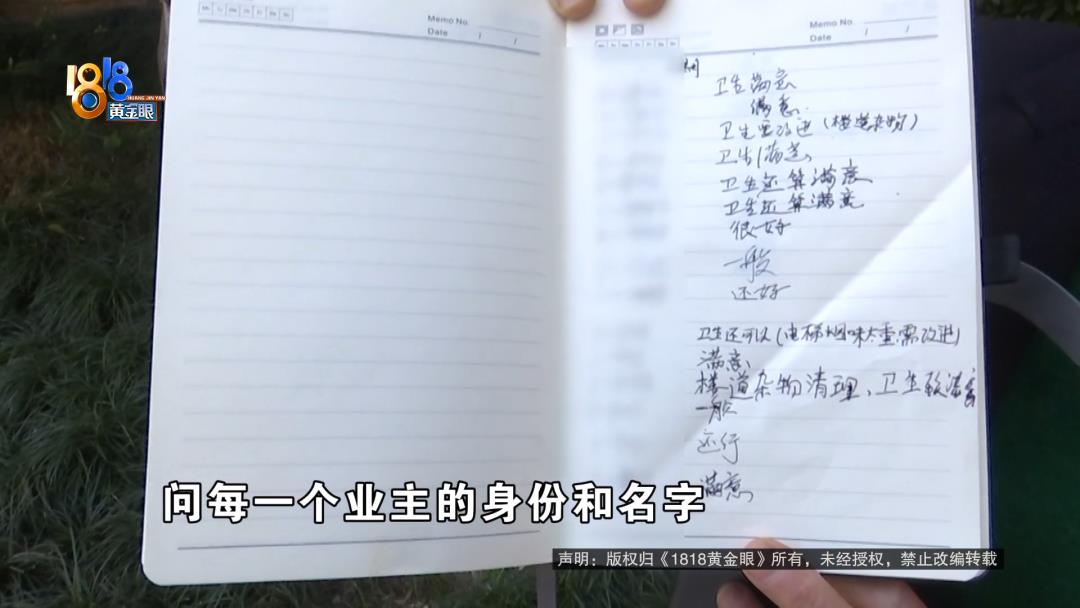 Mo Tu We Th Fr Sa Su
Memo No.
Date / /
Memo No.
Date / /
1818
HUANG JIN YAN
黄金眼
卫生满意
满意
卫生要改进（楼道杂物）
卫生满意
卫生还算满意
卫生还算满意
很好
一般
还好
卫生还可以（电梯烟味太重需改进）
满意
楼道杂物清理、卫生较满意
一般
还行
满意
问每一个业主的身份和名字
声明：版权归《1818黄金眼》所有，未经授权，禁止改编转载